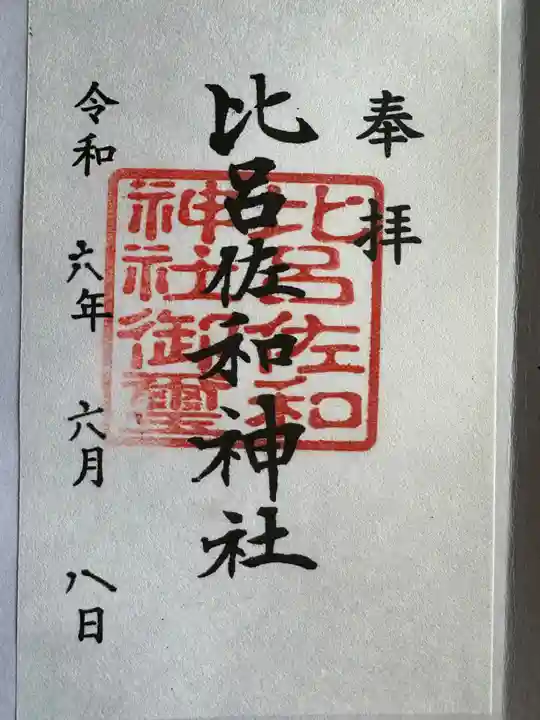 奉拝
比呂佐和神社
令和六年六月八日
比呂佐和
神社御璽